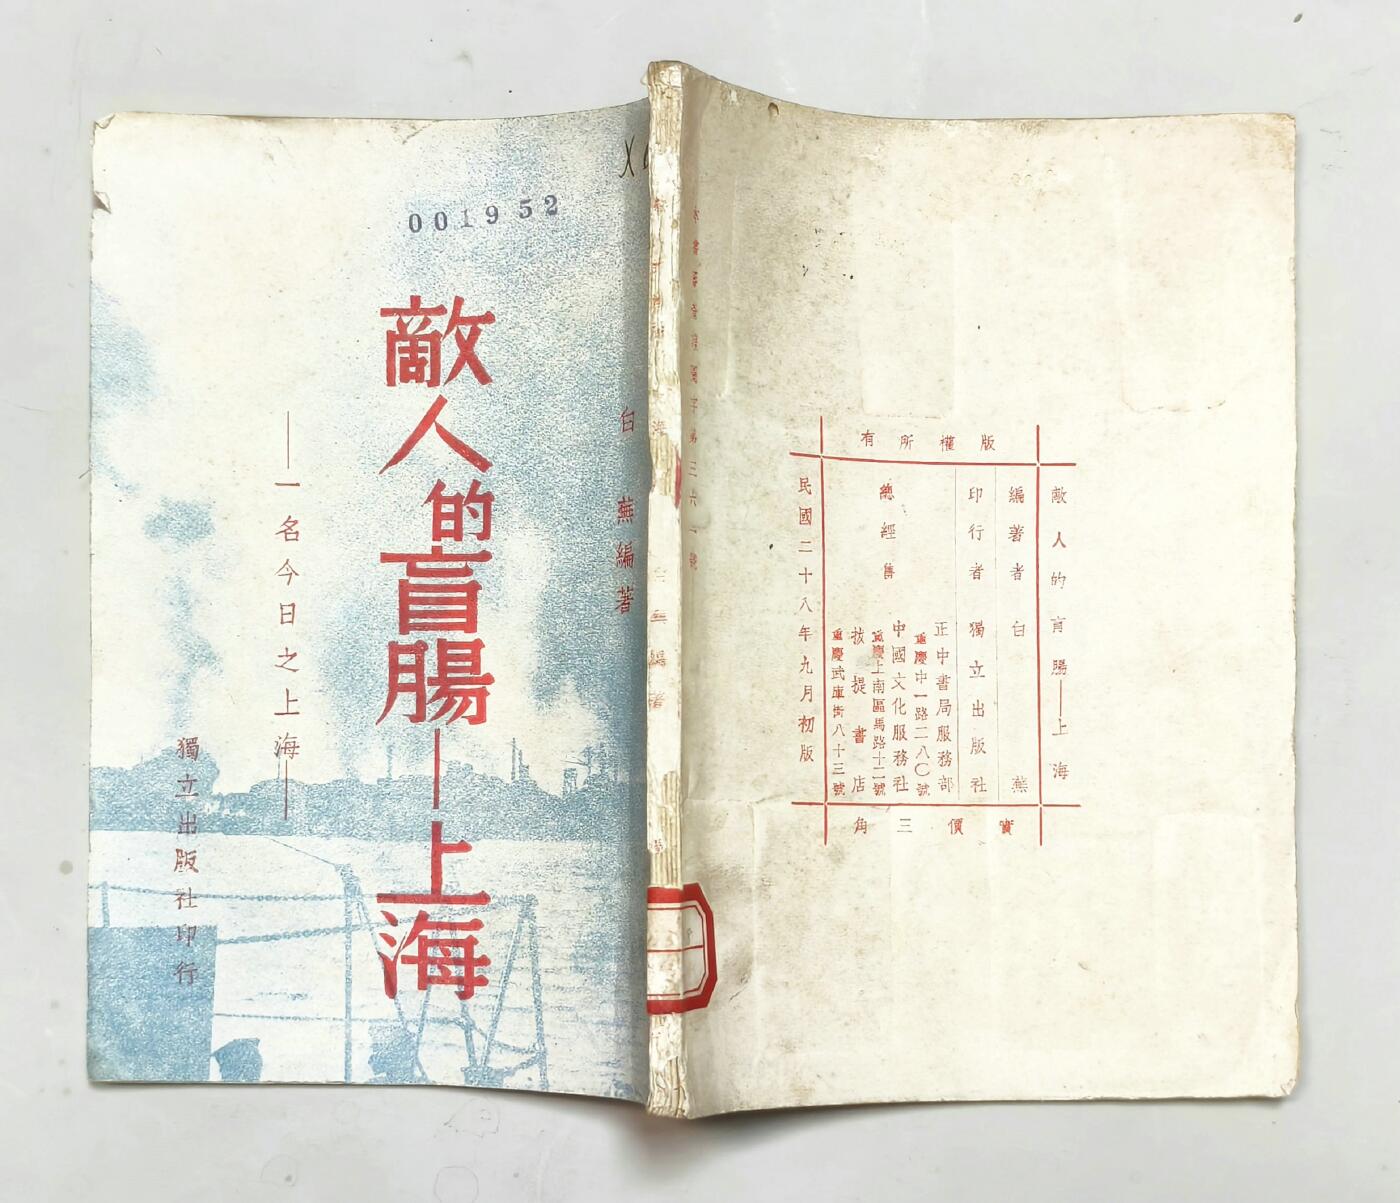 001952
敵人的盲腸—上海
—一名今日之上海—
白蕪編著
獨立出版社印行
版權所有
敵人的盲腸—上海
編著者 白蕪
印行者 獨立出版社
總經售
正中書局服務部
重慶中一路二八〇號
中國文化服務社
重慶上南區馬路十二號
拔提書店
重慶武庫街八十三號
民國二十八年九月初版
實價三角